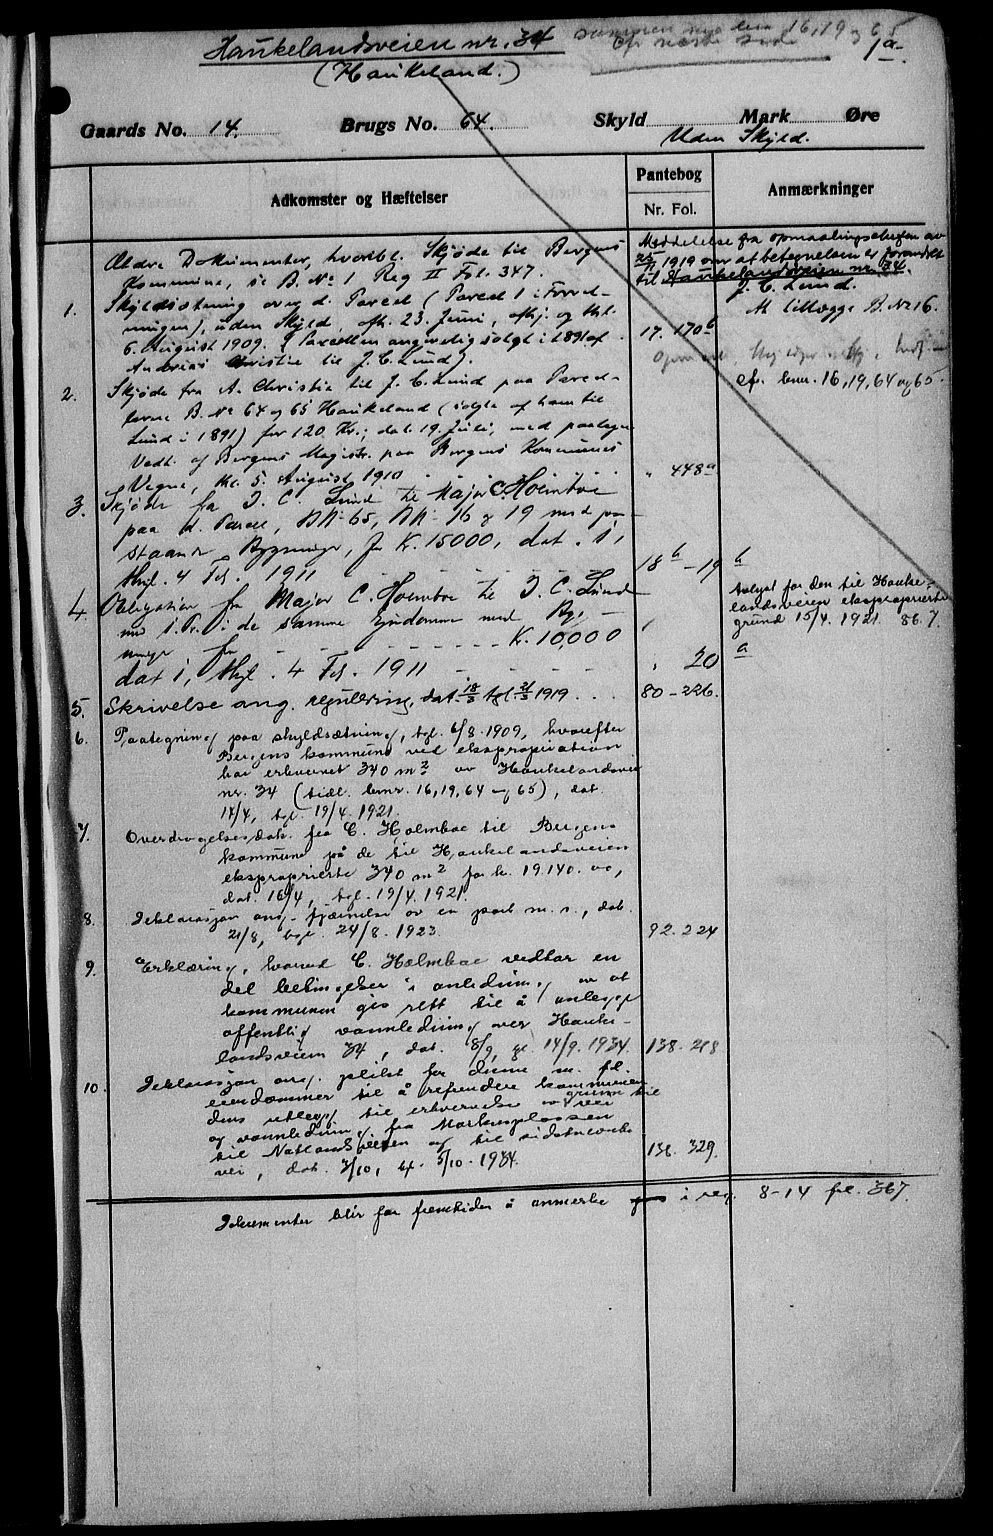 Haukelandsveien nr. 34
sammen med bnr 16, 19 og 65
cfr næste side
1a.
(Haukeland.)
Gaards No. 14. Brugs No. 64. Skyld Mark Øre
Uden Skyld.
Adkomster og Hæftelser
Pantebog
Nr. Fol.
Anmærkninger
Ældre Dokumenter, hvoribl. Skjøde til Bergens
Kommune, se B. No 1 Reg II Fol. 347.
Meddelelse fra opmaalingschefen av
1919 om at betegnelsen er forandret
til Haukelandsveien nr. 34.
J. C. Lund.
1. Skyldsætning over d. Parcel (Parcel 1 i Forret-
ningen), uden Skyld, afh. 23. Juni, afhj. og thl.
6. August 1909. (Parcellen angivelig solgt i 1891 af
Andreas Christie til J. C. Lund).
17. 170b
At tillægges B. No 16.
cfr. bnr. 16, 19, 64 og 65.
2. Skjøde fra A. Christie til J. C. Lund paa Parcel-
lerne B. No 64 og 65 Haukeland (solgte af ham til
Lund i 1891) for 120 Kr.; dat. 19. Juli, med paategn.
Vedt. af Bergens Magistr. paa Bergens Kommunes
Vegne, thl. 5. August 1910
" 448a
3. Skjøde fra J. C. Lund til Major C. Holmboe
paa d. Parcel, BN 65, BN 16 og 19 med paa-
staaende Bygninger, for Kr. 15000, dat. i,
thgl. 4 Feb. 1911
18b - 19
4. Obligation fra Major C. Holmboe til J. C. Lund
med 1. Pr. i de samme Ejendomme med Byg-
ninger for Kr. 10,000
dat i, thgl. 4 Feb. 1911
" 20
b
Avlyst for den til Hauke-
landsveien eksproprierte
grund 15/4. 1921. 86. 7.
a
5. Skrivelse ang. regulering, dat. 18/3 tgl. 21/3 1919. . . .
80 - 226.
6. Paategning paa skyldsætning, tgl. 6/8 1909, hvorefter
Bergens kommune ved ekspropriation
har erhvervet 340 m2 av Haukelandsvei
nr. 34 (tidl. bnr. 16, 19, 64 og 65), dat.
14/4, tgl. 19/4. 1921.
7. Overdragelsesdok. fra C. Holmboe til Bergens
kommune på de til Haukelandsveien
eksproprierte 340 m2 for kr. 19.140. oo,
dat. 16/4, tgl. 19/4. 1921.
8. Deklarasjon ang. fjærnelse av en port m. v., dat.
21/8, tgl. 24/8. 1923.
92. 224
9. Erklæring, hvorved C. Holmboe vedtar en
del betingelser i anledning av at
kommunen gis rett til å anlegge
offentlig vannledning over Hauke-
landsveien 34, dat. 8/9, gl. 14/9. 1934.
138. 218
10. Deklarasjon ang. plikt for denne m. fl.
eiendommer til å refundere kommunen
dens utlegg til erhvervelse av grunn til vei
og vannledning fra Markusplassen
til Natlandsveien og til sidstnevnte
vei, dat. 3/10, tgl. 5/10. 1934.
138. 329.
Dokumenter blir for fremtiden å anmerke i reg. 8-14 fol. 367.